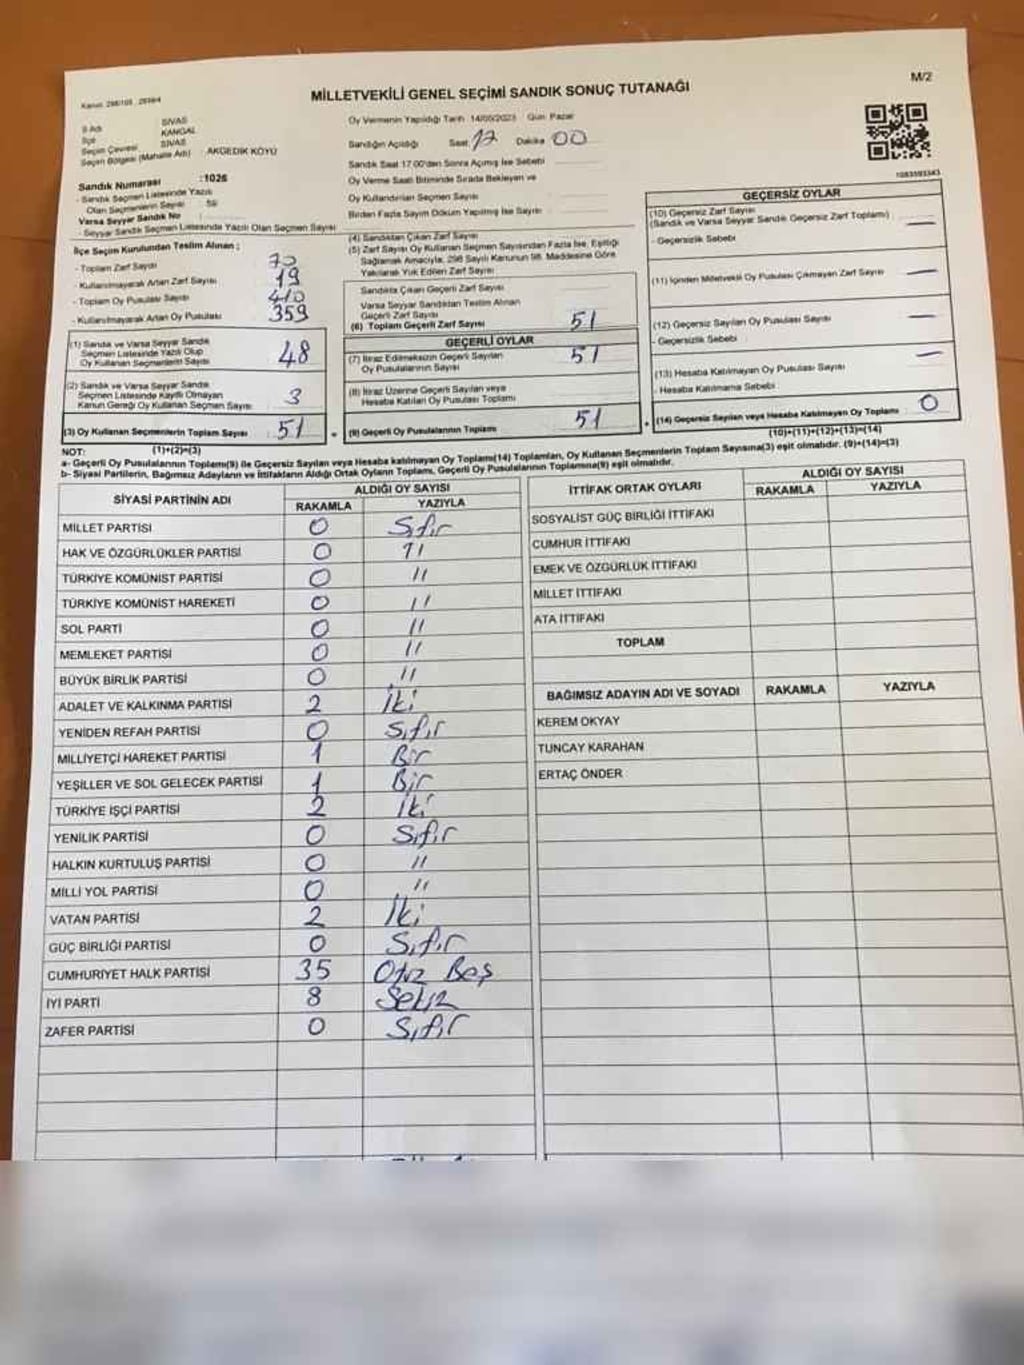 Kanun: 298/105, 2839/4
M/2
MİLLETVEKİLİ GENEL SEÇİMİ SANDIK SONUÇ TUTANAĞI
İl Adı SİVAS
İlçe KANGAL
Seçim Çevresi SİVAS
Seçim Bölgesi (Mahalle Adı) AKGEDİK KÖYÜ
Sandık Numarası :1026
- Sandık Seçmen Listesinde Yazılı
Olan Seçmenlerin Sayısı : 59
Varsa Seyyar Sandık No :
- Seyyar Sandık Seçmen Listesinde Yazılı Olan Seçmen Sayısı
Oy Vermenin Yapıldığı Tarih 14/05/2023 Gün: Pazar
Sandığın Açıldığı Saat: 17 Dakika 00
Sandık Saat 17.00'den Sonra Açımış İse Sebebi
Oy Verme Saati Bitiminde Sırada Bekleyen ve
Oy Kullandırılan Seçmen Sayısı
Birden Fazla Sayım Döküm Yapılmış İse Sayısı
1083593343
İlçe Seçim Kurulundan Teslim Alınan ;
- Toplam Zarf Sayısı 70
- Kullanılmayarak Artan Zarf Sayısı 19
- Toplam Oy Pusulası Sayısı 410
- Kullanılmayarak Artan Oy Pusulası 359
(1) Sandık ve Varsa Seyyar Sandık
Seçmen Listesinde Yazılı Olup
Oy Kullanan Seçmenlerin Sayısı 48
(2) Sandık ve Varsa Seyyar Sandık
Seçmen Listesinde Kayıtlı Olmayan
Kanun Gereği Oy Kullanan Seçmen Sayısı 3
(3) Oy Kullanan Seçmenlerin Toplam Sayısı 51
(1)+(2)=(3)
(4) Sandıktan Çıkan Zarf Sayısı
(5) Zarf Sayısı Oy Kullanan Seçmen Sayısından Fazla İse, Eşitliği
Sağlamak Amacıyla, 298 Sayılı Kanunun 98. Maddesine Göre
Yakılarak Yok Edilen Zarf Sayısı
Sandıkta Çıkan Geçerli Zarf Sayısı
Varsa Seyyar Sandıktan Teslim Alınan
Geçerli Zarf Sayısı
(6) Toplam Geçerli Zarf Sayısı 51
GEÇERLİ OYLAR
(7) İtiraz Edilmeksizin Geçerli Sayılan
Oy Pusulalarının Sayısı 51
(8) İtiraz Üzerine Geçerli Sayılan veya
Hesaba Katılan Oy Pusulası Toplamı
= (9) Geçerli Oy Pusulalarının Toplamı 51
GEÇERSİZ OYLAR
(10) Geçersiz Zarf Sayısı
(Sandık ve Varsa Seyyar Sandık Geçersiz Zarf Toplamı) —
- Geçersizlik Sebebi
(11) İçinden Milletvekili Oy Pusulası Çıkmayan Zarf Sayısı —
(12) Geçersiz Sayılan Oy Pusulası Sayısı —
- Geçersizlik Sebebi
(13) Hesaba Katılmayan Oy Pusulası Sayısı —
- Hesaba Katılmama Sebebi
+ (14) Geçersiz Sayılan veya Hesaba Katılmayan Oy Toplamı 0
(10)+(11)+(12)+(13)=(14)
NOT:
a- Geçerli Oy Pusulalarının Toplamı(9) ile Geçersiz Sayılan veya Hesaba katılmayan Oy Toplamı(14) Toplamları, Oy Kullanan Seçmenlerin Toplam Sayısına(3) eşit olmalıdır. (9)+(14)=(3)
b- Siyasi Partilerin, Bağımsız Adayların ve İttifakların Aldığı Ortak Oyların Toplamı, Geçerli Oy Pusulalarının Toplamına(9) eşit olmalıdır.
SİYASİ PARTİNİN ADI ALDIĞI OY SAYISI
RAKAMLA YAZIYLA
MİLLET PARTİSİ 0 Sıfır
HAK VE ÖZGÜRLÜKLER PARTİSİ 0 "
TÜRKİYE KOMÜNİST PARTİSİ 0 "
TÜRKİYE KOMÜNİST HAREKETİ 0 "
SOL PARTİ 0 "
MEMLEKET PARTİSİ 0 "
BÜYÜK BİRLİK PARTİSİ 0 "
ADALET VE KALKINMA PARTİSİ 2 İki
YENİDEN REFAH PARTİSİ 0 Sıfır
MİLLİYETÇİ HAREKET PARTİSİ 1 Bir
YEŞİLLER VE SOL GELECEK PARTİSİ 1 Bir
TÜRKİYE İŞÇİ PARTİSİ 2 İki
YENİLİK PARTİSİ 0 Sıfır
HALKIN KURTULUŞ PARTİSİ 0 "
MİLLİ YOL PARTİSİ 0 "
VATAN PARTİSİ 2 İki
GÜÇ BİRLİĞİ PARTİSİ 0 Sıfır
CUMHURİYET HALK PARTİSİ 35 Otuz Beş
İYİ PARTİ 8 Sekiz
ZAFER PARTİSİ 0 Sıfır
İTTİFAK ORTAK OYLARI ALDIĞI OY SAYISI
RAKAMLA YAZIYLA
SOSYALİST GÜÇ BİRLİĞİ İTTİFAKI
CUMHUR İTTİFAKI
EMEK VE ÖZGÜRLÜK İTTİFAKI
MİLLET İTTİFAKI
ATA İTTİFAKI
TOPLAM
BAĞIMSIZ ADAYIN ADI VE SOYADI RAKAMLA YAZIYLA
KEREM OKYAY
TUNCAY KARAHAN
ERTAÇ ÖNDER